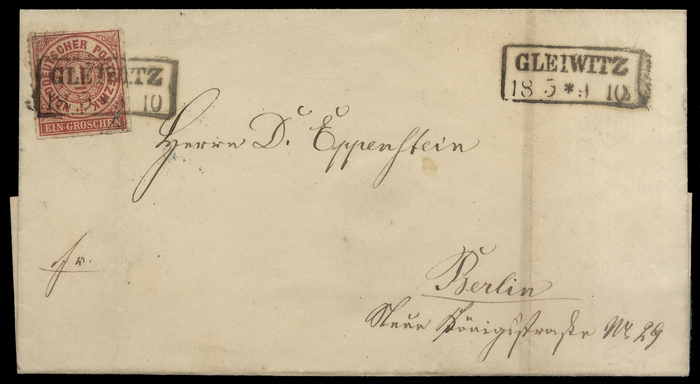 NORDDEUTSCHER POSTBEZIRK
EIN GROSCHEN
GLEIWITZ
10
GLEIWITZ
18 5 * 9 10
Herrn Dr. Eppenstein
fr.
Berlin
Neue Königsstraße No 29